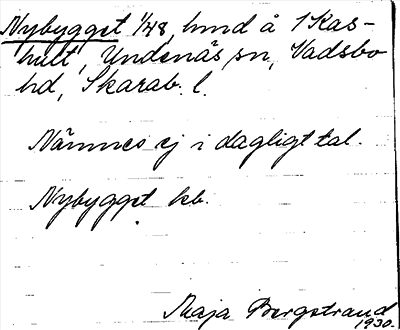 Nybygget 1/48, hmd å 1 Kas-
hult, Undenäs sn, Vadsbo
hd, Skarab. l.
Nämnes ej i dagligt tal.
Nybygget kb.
Maja Bergstrand
1930.